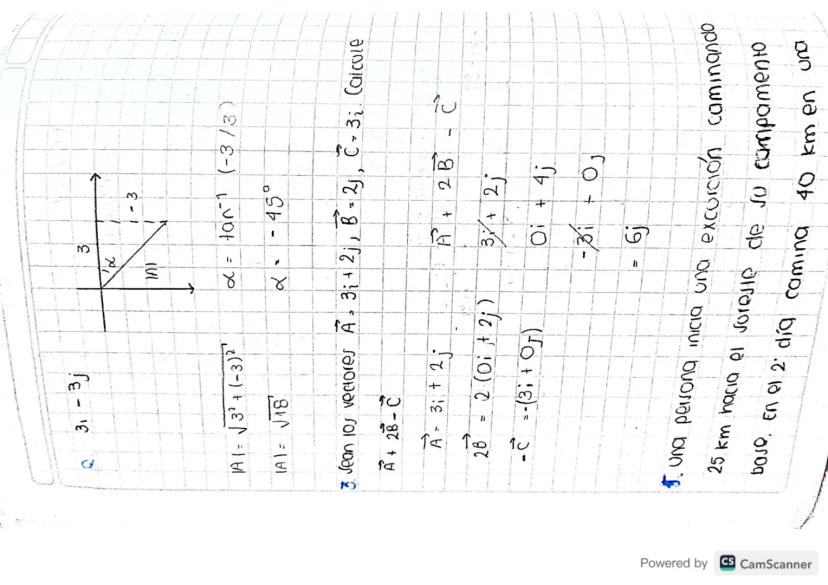 a 3i - 3j
3
α
|A|
- 3
|A| = √3² + (-3)²
α = tan⁻¹ (-3/3)
|A| = √18
α = - 45°
3. Sean los vectores A⃗ = 3i + 2j, B⃗ = 2j, C⃗ = 3i. Calcule
A⃗ + 2B⃗ - C⃗
A⃗ = 3i + 2j
A⃗ + 2B⃗ - C⃗
2B = 2(0i + 2j)
3i + 2j
-C⃗ = -(3i + 0j)
0i + 4j
-3i + 0j
= 6j
5. Una persona inicia una excursión caminando
25 km hacia el sureste de su campamento
base. En el 2° día camina 40 km en una
Powered by CS CamScanner